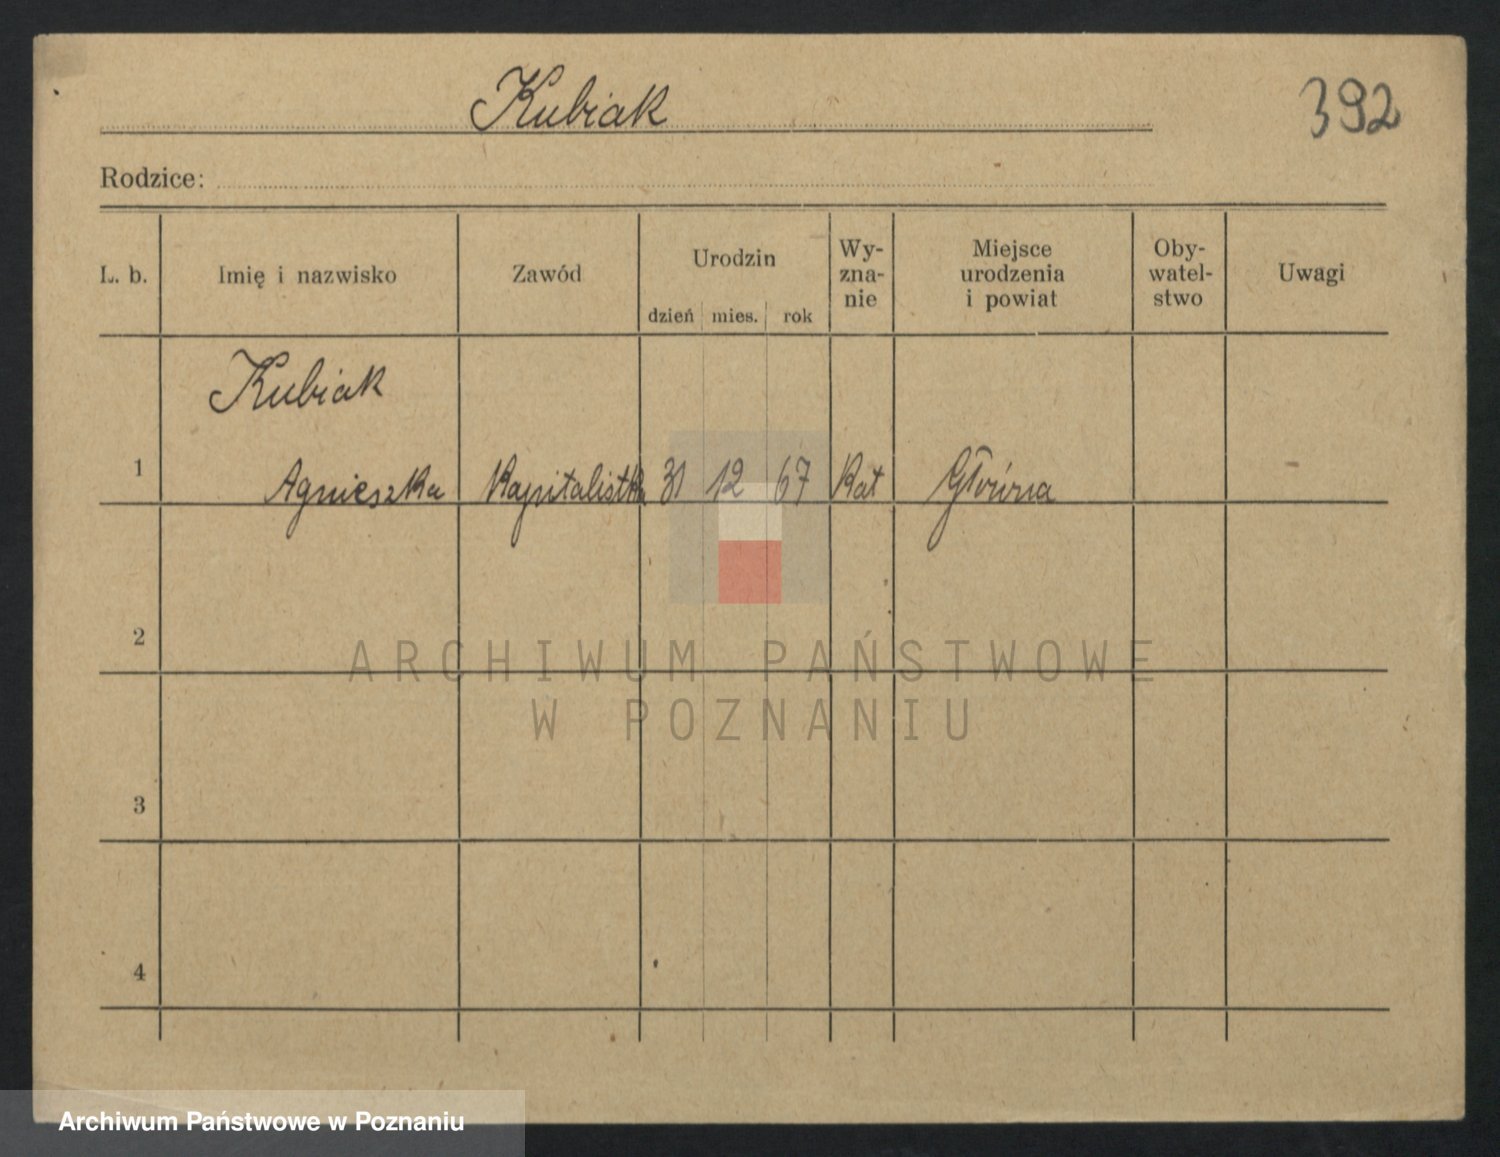 Kubiak
392
Rodzice:
L. b.
Imię i nazwisko
Zawód
Urodzin
dzień mies. rok
Wy-
zna-
nie
Miejsce
urodzenia
i powiat
Oby-
watel-
stwo
Uwagi
Kubiak
1 Agnieszka Kapitalistka 31 12 67 Kat Główna
2
3
4
ARCHIWUM PAŃSTWOWE
W POZNANIU
Archiwum Państwowe w Poznaniu